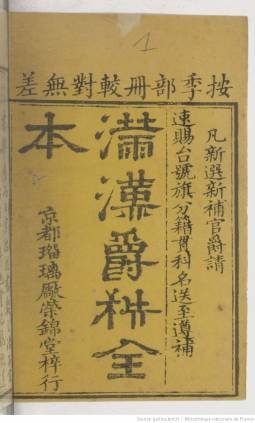 按季部冊較對無差
凡新選新補官爵請
速賜台號旗分籍貫科名送至遵補
滿漢爵秩全
本
京都瑠璃廠榮錦堂梓行
1
Source gallica.bnf.fr / Bibliothèque nationale de France